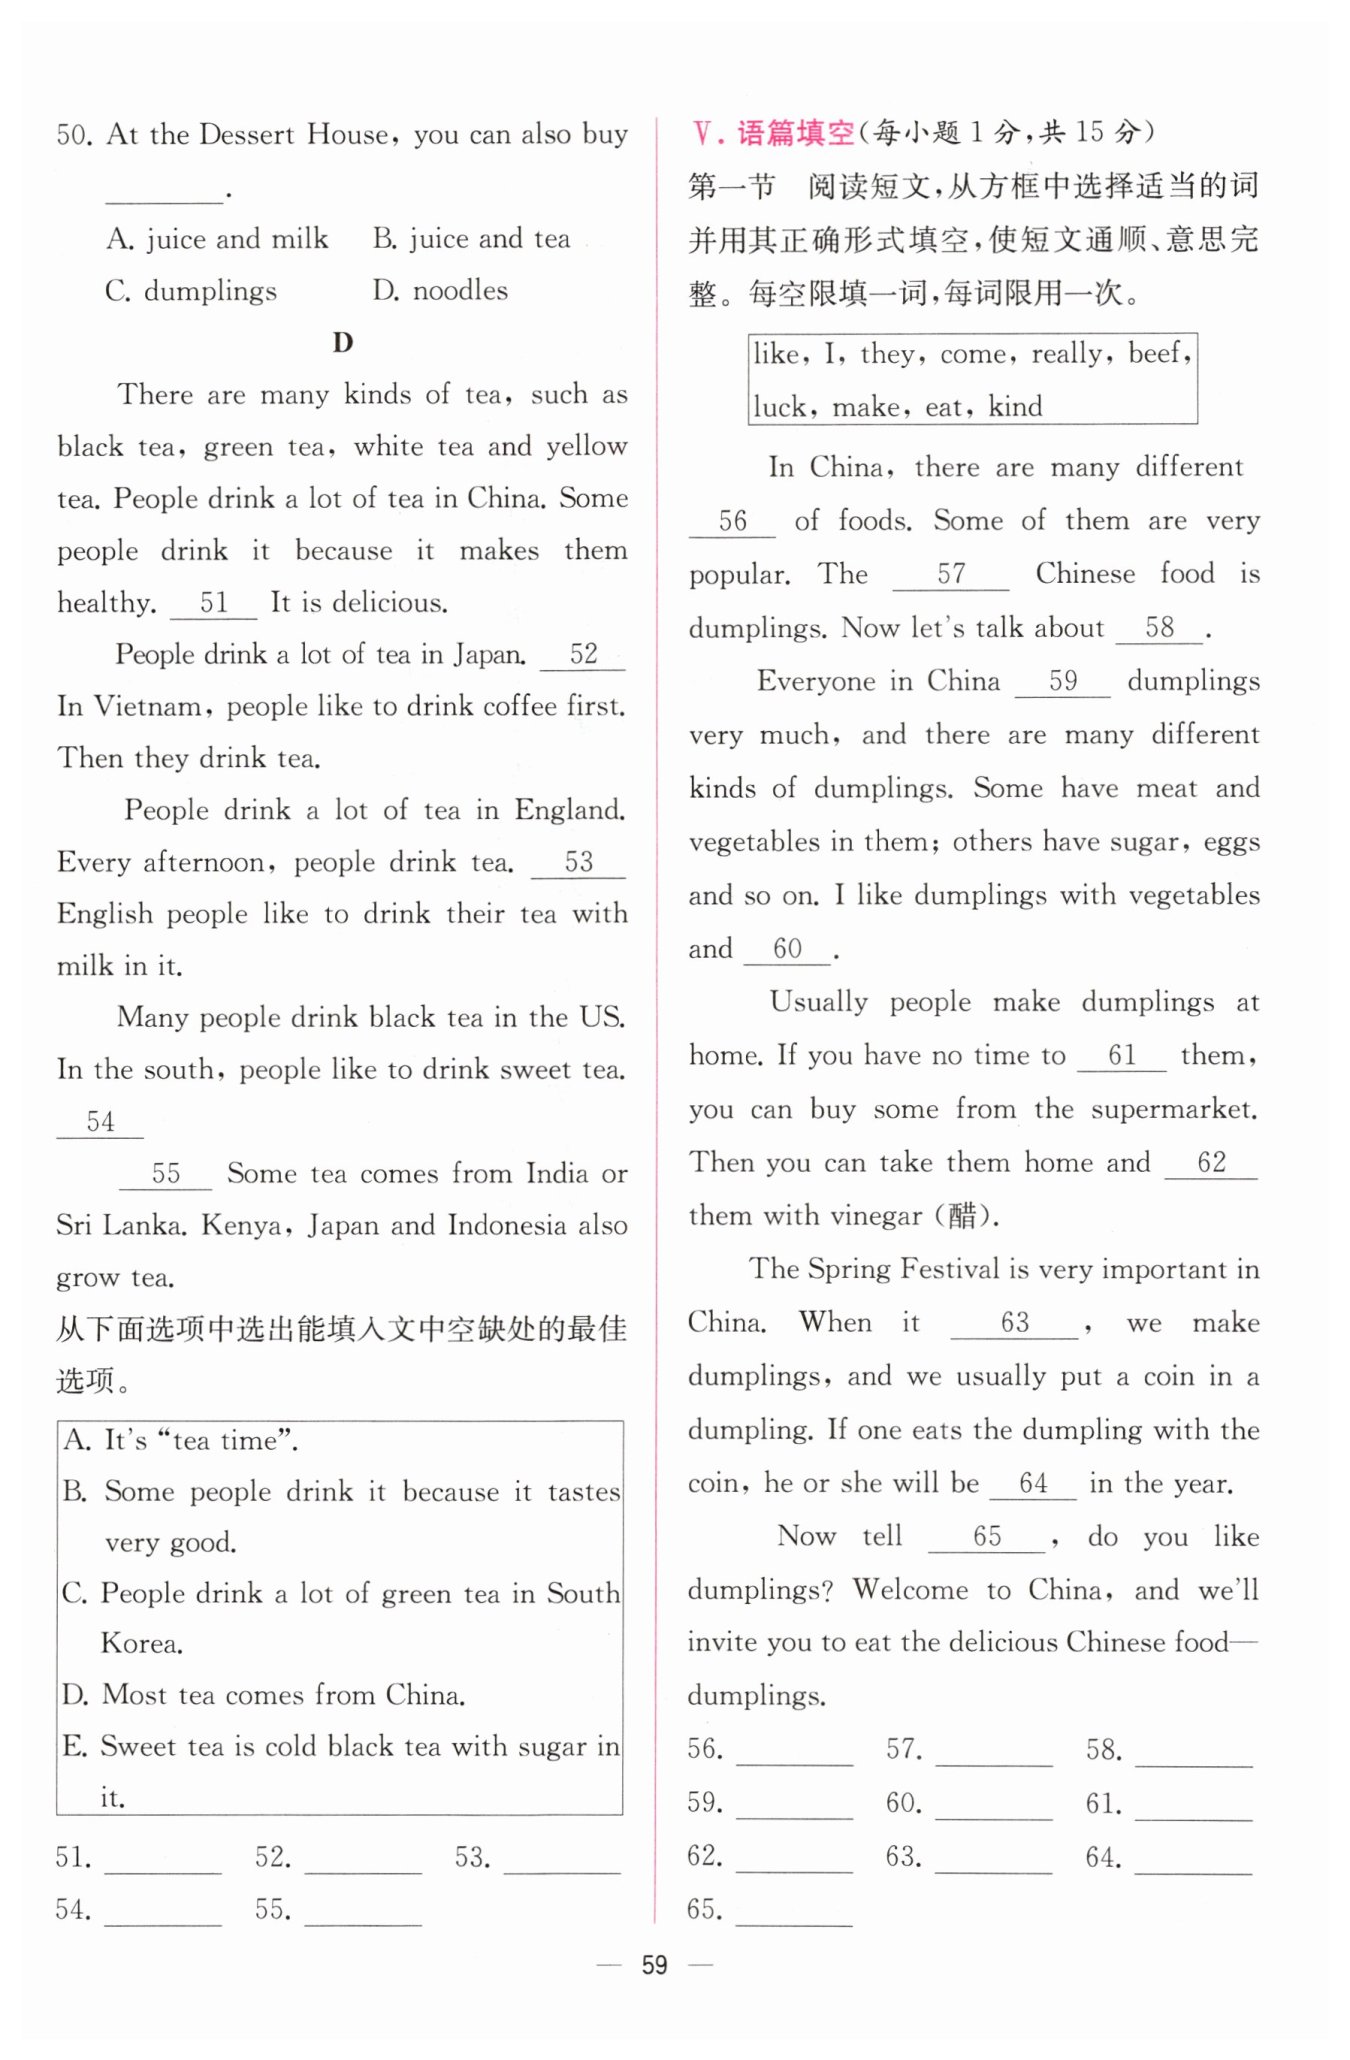 50. At the Dessert House, you can also buy
________.
A. juice and milk B. juice and tea
C. dumplings D. noodles
D
There are many kinds of tea, such as
black tea, green tea, white tea and yellow
tea. People drink a lot of tea in China. Some
people drink it because it makes them
healthy. 51 It is delicious.
People drink a lot of tea in Japan. 52
In Vietnam, people like to drink coffee first.
Then they drink tea.
People drink a lot of tea in England.
Every afternoon, people drink tea. 53
English people like to drink their tea with
milk in it.
Many people drink black tea in the US.
In the south, people like to drink sweet tea.
54
55 Some tea comes from India or
Sri Lanka. Kenya, Japan and Indonesia also
grow tea.
从下面选项中选出能填入文中空缺处的最佳
选项。
A. It's “tea time”.
B. Some people drink it because it tastes
very good.
C. People drink a lot of green tea in South
Korea.
D. Most tea comes from China.
E. Sweet tea is cold black tea with sugar in
it.
51. ________ 52. ________ 53. ________
54. ________ 55. ________
Ⅴ. 语篇填空(每小题 1 分,共 15 分)
第一节 阅读短文,从方框中选择适当的词
并用其正确形式填空,使短文通顺、意思完
整。每空限填一词,每词限用一次。
like, I, they, come, really, beef,
luck, make, eat, kind
In China, there are many different
56 of foods. Some of them are very
popular. The 57 Chinese food is
dumplings. Now let's talk about 58 .
Everyone in China 59 dumplings
very much, and there are many different
kinds of dumplings. Some have meat and
vegetables in them; others have sugar, eggs
and so on. I like dumplings with vegetables
and 60 .
Usually people make dumplings at
home. If you have no time to 61 them,
you can buy some from the supermarket.
Then you can take them home and 62
them with vinegar (醋).
The Spring Festival is very important in
China. When it 63 , we make
dumplings, and we usually put a coin in a
dumpling. If one eats the dumpling with the
coin, he or she will be 64 in the year.
Now tell 65 , do you like
dumplings? Welcome to China, and we'll
invite you to eat the delicious Chinese food—
dumplings.
56. ________ 57. ________ 58. ________
59. ________ 60. ________ 61. ________
62. ________ 63. ________ 64. ________
65. ________
— 59 —